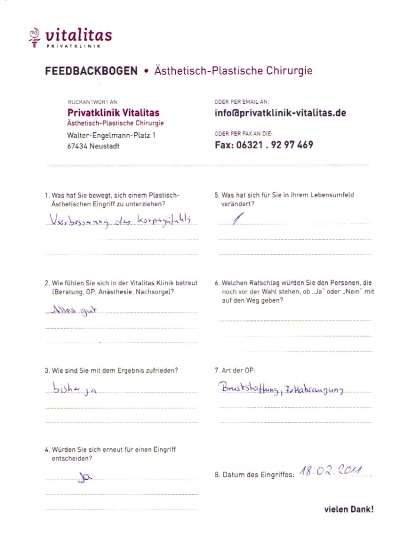 vitalitas
PRIVATKLINIK
FEEDBACKBOGEN • Ästhetisch-Plastische Chirurgie
RÜCKANTWORT AN
Privatklinik Vitalitas
Ästhetisch-Plastische Chirurgie
Walter-Engelmann-Platz 1
67434 Neustadt
ODER PER EMAIL AN:
info@privatklinik-vitalitas.de
ODER PER FAX AN DIE:
Fax: 06321 . 92 97 469
1. Was hat Sie bewegt, sich einem Plastisch-
Ästhetischen Eingriff zu unterziehen?
Verbesserung des Körpergefühls
2. Wie fühlen Sie sich in der Vitalitas Klinik betreut
(Beratung, OP, Anästhesie, Nachsorge)?
Alles gut
3. Wie sind Sie mit dem Ergebnis zufrieden?
bisher ja
4. Würden Sie sich erneut für einen Eingriff
entscheiden?
Ja
5. Was hat sich für Sie in ihrem Lebensumfeld
verändert?
/
6. Welchen Ratschlag würden Sie den Personen, die
noch vor der Wahl stehen, ob „Ja" oder „Nein" mit
auf den Weg geben?
7. Art der OP:
Bruststraffung, Fettabsaugung
8. Datum des Eingriffes: 18.02.2011
vielen Dank!